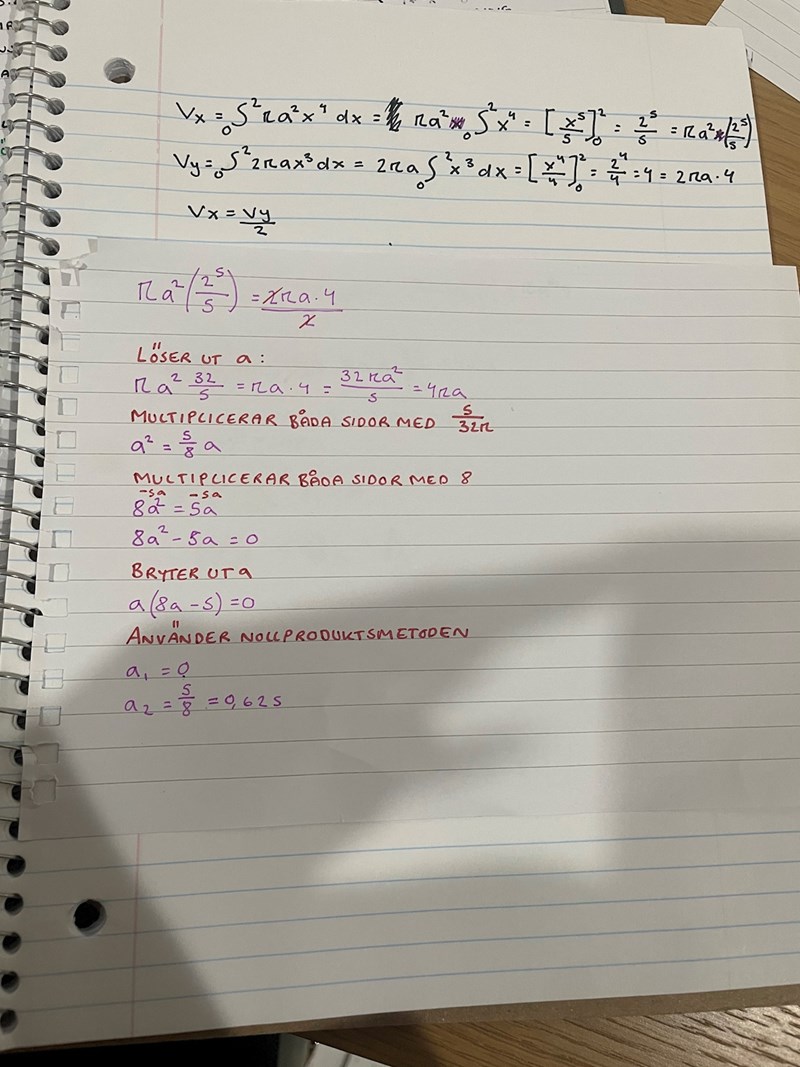 Vx = ₀∫² πa²x⁴ dx = πa² ₀∫² x⁴ = [x⁵/5]₀² = 2⁵/5 = πa² * (2⁵/5)
Vy = ₀∫² 2πax³ dx = 2πa ₀∫² x³ dx = [x⁴/4]₀² = 2⁴/4 = 4 = 2πa · 4
Vx = Vy/2
πa² (2⁵/5) = 2πa · 4/2
LÖSER UT a :
πa² 32/5 = πa · 4 = 32πa²/5 = 4πa
MULTIPLICERAR BÅDA SIDOR MED 5/32π
a² = 5/8 a
MULTIPLICERAR BÅDA SIDOR MED 8
-5a -5a
8a² = 5a
8a² - 5a = 0
BRYTER UT a
a(8a - 5) = 0
ANVÄNDER NOLLPRODUKTSMETODEN
a₁ = 0
a₂ = 5/8 = 0,625